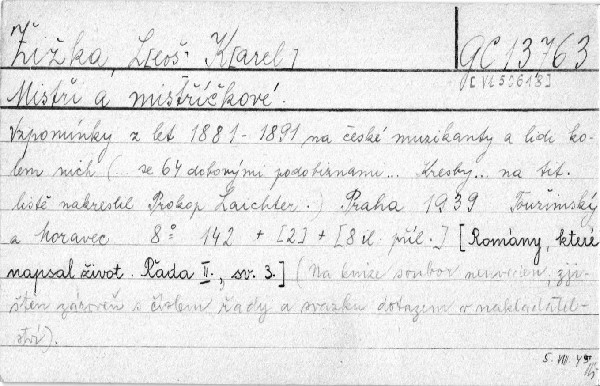 Žižka, L[eoš] K[arel]
GC 13763
Mistři a mistříčkové.
Vzpomínky z let 1881-1891 na české muzikanty a lidi ko-
lem nich (... se 64 dobovými podobiznami... Kresby... na tit.
listě nakreslil Prokop Laichter.) Praha 1939 Toužimský
a Moravec 8° 142 + [2] + [8 il. příl.] [Romány, které
napsal život. Řada II., sv. 3.] (Na knize soubor neuveden, zji-
štěn zároveň s číslem řady a svazku dotazem v nakladatel-
ství).
5. VIII. 49